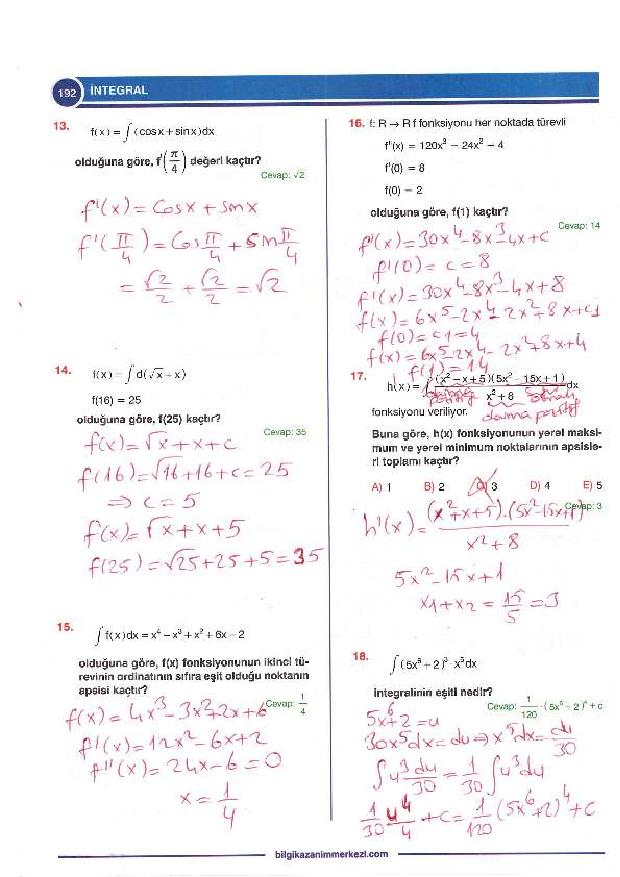 192 İNTEGRAL
13.
f(x) = ∫(cosx + sinx)dx
olduğuna göre, f'(π/4) değeri kaçtır?
Cevap: √2
f'(x) = Cosx + Sinx
f'(π/4) = Cos π/4 + Sin π/4
= √2/2 + √2/2 = √2
14.
f(x) = ∫ d(√x + x)
f(16) = 25
olduğuna göre, f(25) kaçtır?
Cevap: 35
f(x) = √x + x + c
f(16) = √16 + 16 + c = 25
⇒ c = 5
f(x) = √x + x + 5
f(25) = √25 + 25 + 5 = 35
15.
∫ f(x)dx = x⁴ – x³ + x² + 6x – 2
olduğuna göre, f(x) fonksiyonunun ikinci tü-
revinin ordinatının sıfıra eşit olduğu noktanın
apsisi kaçtır?
Cevap: 1/4
f(x) = 4x³ – 3x² + 2x + 6
f'(x) = 12x² – 6x + 2
f''(x) = 24x – 6 = 0
x = 1/4
16. f: R → R f fonksiyonu her noktada türevli
f''(x) = 120x³ – 24x² – 4
f'(0) = 8
f(0) = 2
olduğuna göre, f(1) kaçtır?
Cevap: 14
f'(x) = 30x⁴ – 8x³ – 4x + c
f'(0) = c = 8
f'(x) = 30x⁴ – 8x³ – 4x + 8
f(x) = 6x⁵ – 2x⁴ – 2x² + 8x + c1
f(0) = c1 = 4
f(x) = 6x⁵ – 2x⁴ – 2x² + 8x + 4
f(1) = 14
17.
h(x) = ∫ (x² – x + 5)(5x² – 15x + 1) / x² + 8 dx
daima pozitif
daima pozitif
fonksiyonu veriliyor.
Buna göre, h(x) fonksiyonunun yerel maksi-
mum ve yerel minimum noktalarının apsisle-
ri toplamı kaçtır?
A) 1 B) 2 C) 3 D) 4 E) 5
Cevap: 3
h'(x) = (x² + x + 5) . (5x² – 15x + 1) / x² + 8
5x² – 15x + 1
x1 + x2 = 15/5 = 3
18.
∫ (5x⁶ + 2)³ · x⁵dx
integralinin eşiti nedir?
Cevap: 1/120 · (5x⁶ + 2)⁴ + c
5x⁶ + 2 = u
30x⁵dx = du ⇒ x⁵dx = du/30
∫ u³ du/30 = 1/30 ∫ u³du
1/30 u⁴/4 + c = 1/120 (5x⁶ + 2)⁴ + c
bilgikazanimmerkezi.com